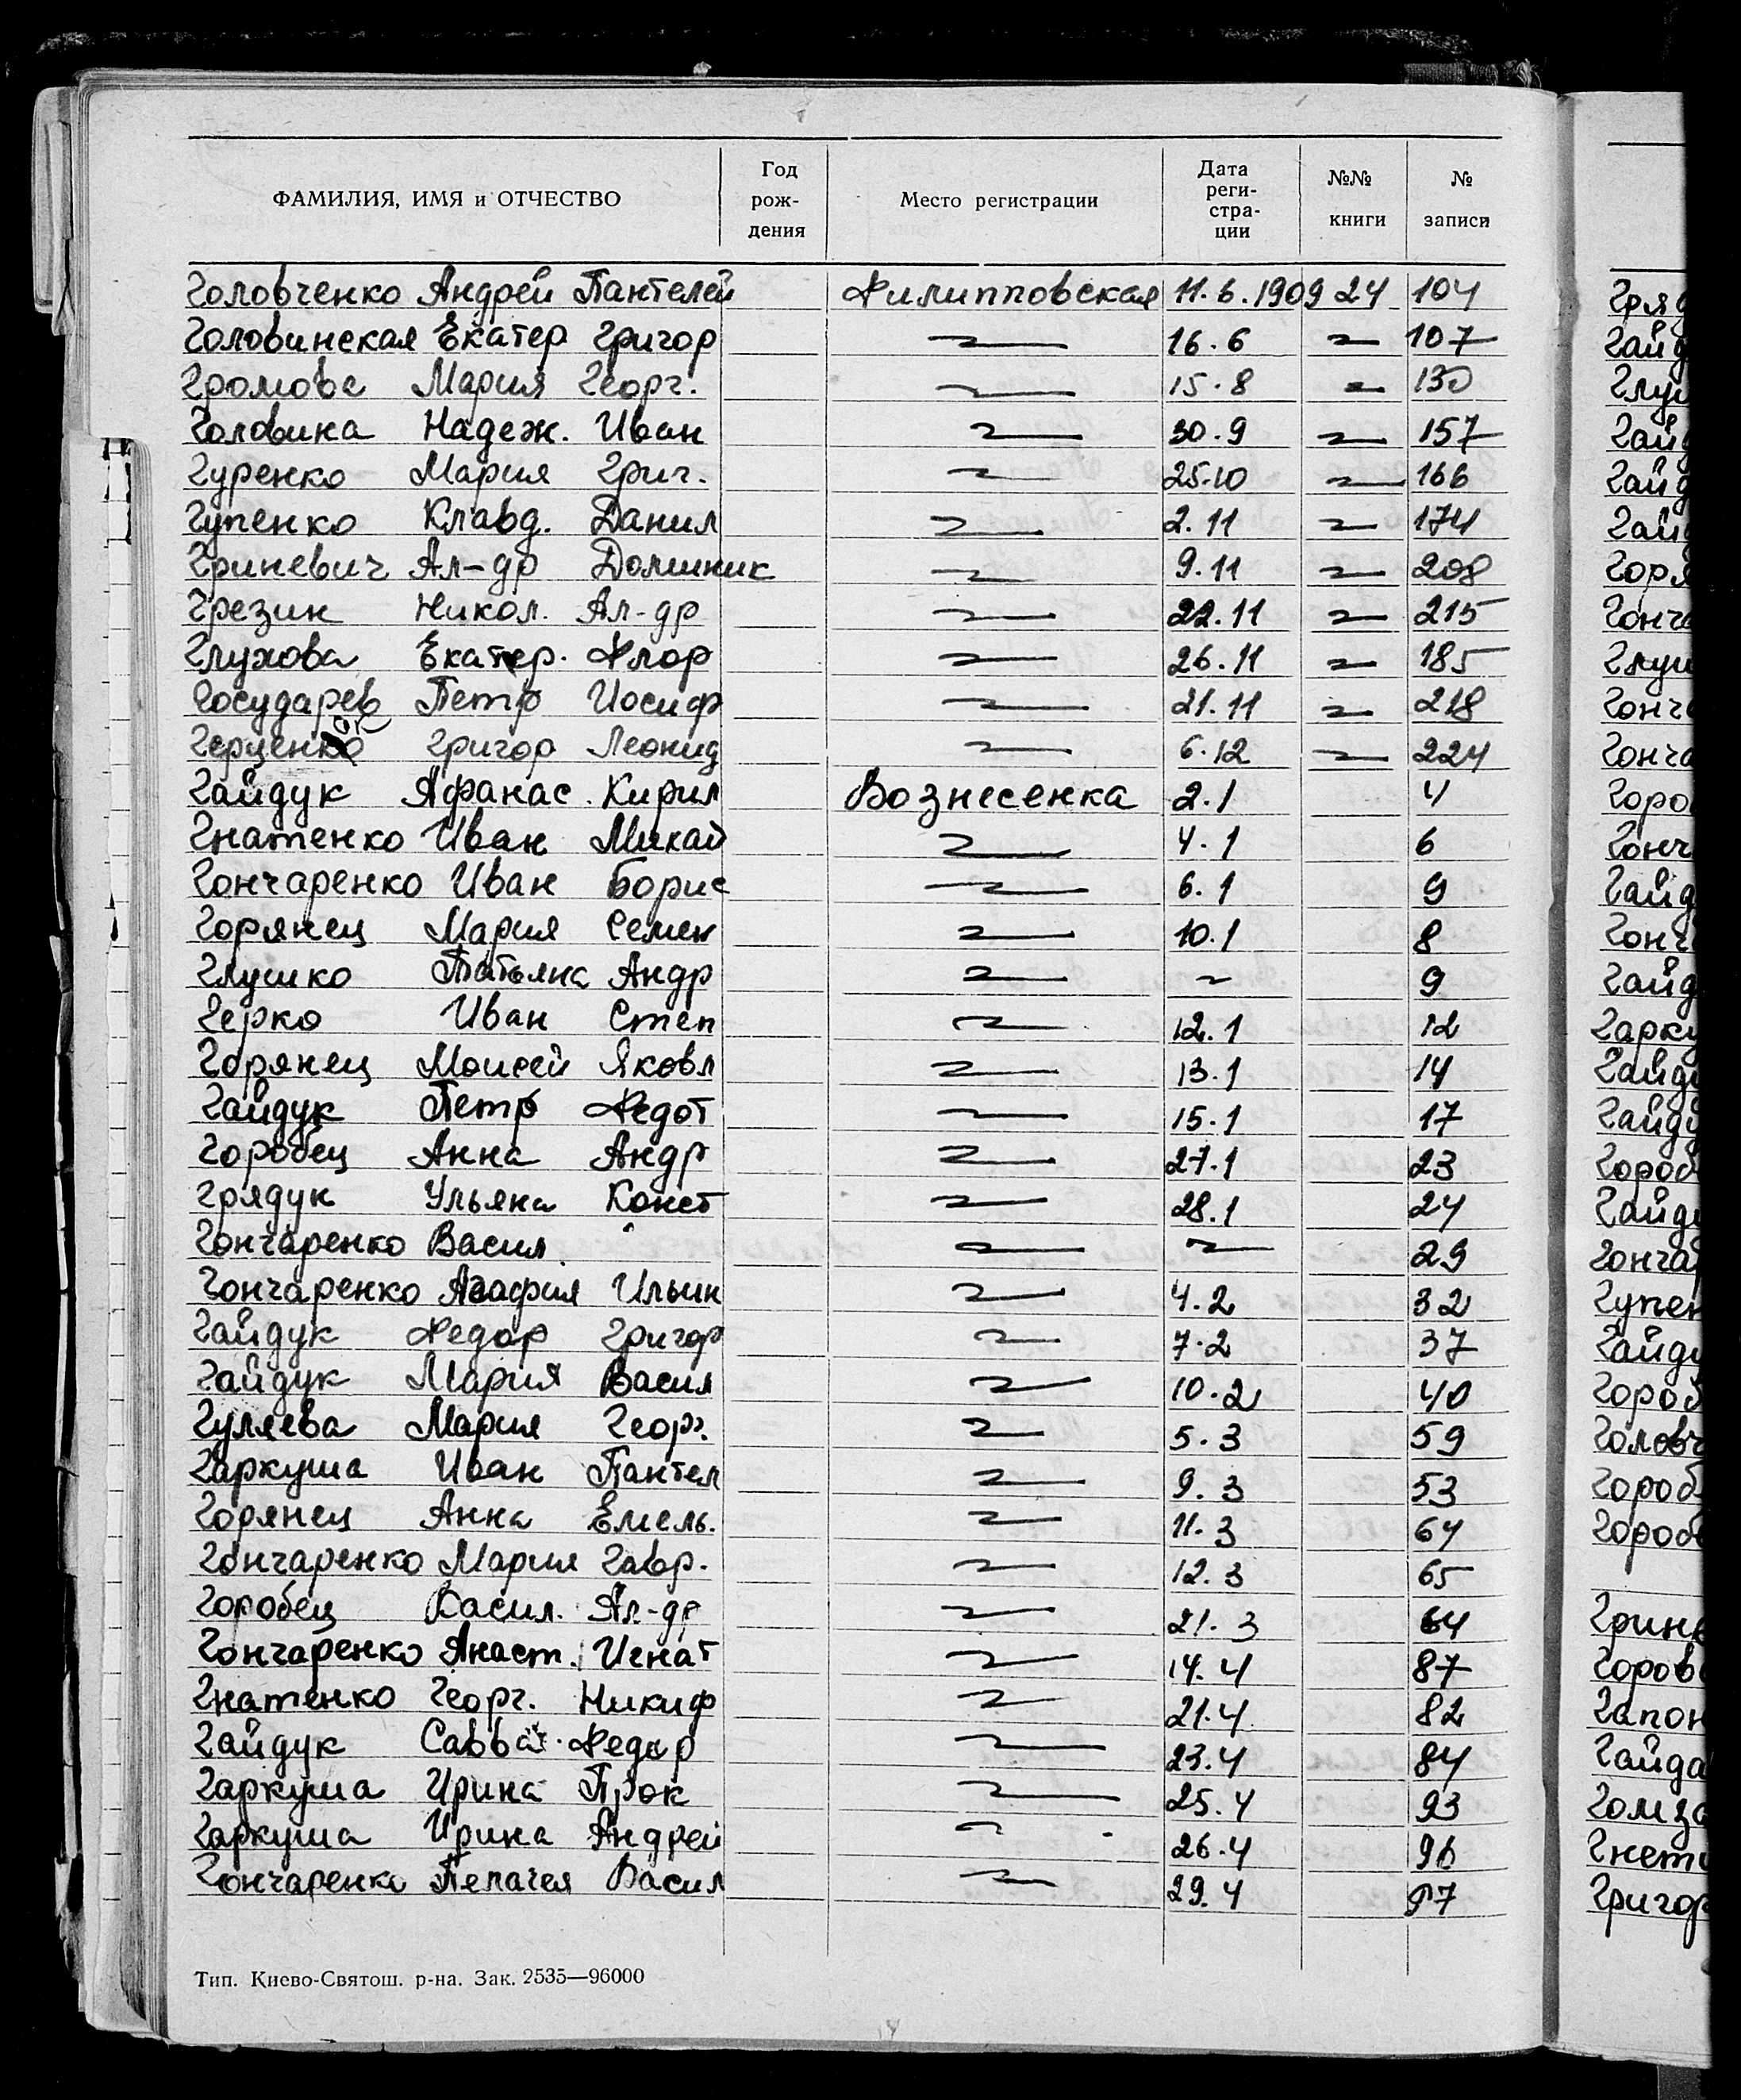 ФАМИЛИЯ, ИМЯ и ОТЧЕСТВО Год рождения Место регистрации Дата регистрации №№ книги № записи
Головченко Андрей Пантелей Филипповская 11.6.1909 24 104
Головинская Екатер Григор 16.6 107
Громова Мария Георг. 15.8 130
Головина Надеж. Иван 30.9 157
Гуренко Мария Григ. 25.10 166
Гупенко Клавд. Данил 2.11 174
Гриневич Ал-др Доминик 9.11 208
Грезин Никол. Ал-др 22.11 215
Глухова Екатер. Флор 26.11 185
Государев Петр Иосиф 21.11 218
Григор Леонид 6.12 224
Гайдук Афанас. Кирил Вознесенка 2.1 4
Гнатенко Иван Михай 4.1 6
Гончаренко Иван Борис 6.1 9
Горянец Мария Семен 10.1 8
Глушко Татьяна Андр 9
Герко Иван Степ 12.1 12
Горянец Моисей Яковл 13.1 14
Гайдук Петр Федот 15.1 17
Горобец Анна Андр 27.1 23
Грядук Ульяна Конст 28.1 24
Гончаренко Васил 29
Гончаренко Агафия Ильин 4.2 32
Гайдук Федор Григор 7.2 37
Гайдук Мария Васил 10.2 40
Гуляева Мария Георг. 5.3 59
Гаркуша Иван Пантел 9.3 53
Горянец Анна Емель. 11.3 64
Гончаренко Мария Гавр. 12.3 65
Горобец Васил. Ал-др 21.3 64
Гончаренко Анаст. Игнат 14.4 87
Гнатенко Георг. Никиф 21.4 82
Гайдук Савва Федор 23.4 84
Гаркуша Ирина Прок 25.4 93
Гаркуша Ирина Андрей 26.4 96
Гончаренко Пелагея Васил 29.4 97
Тип. Киево-Святош. р-на. Зак. 2535—96000